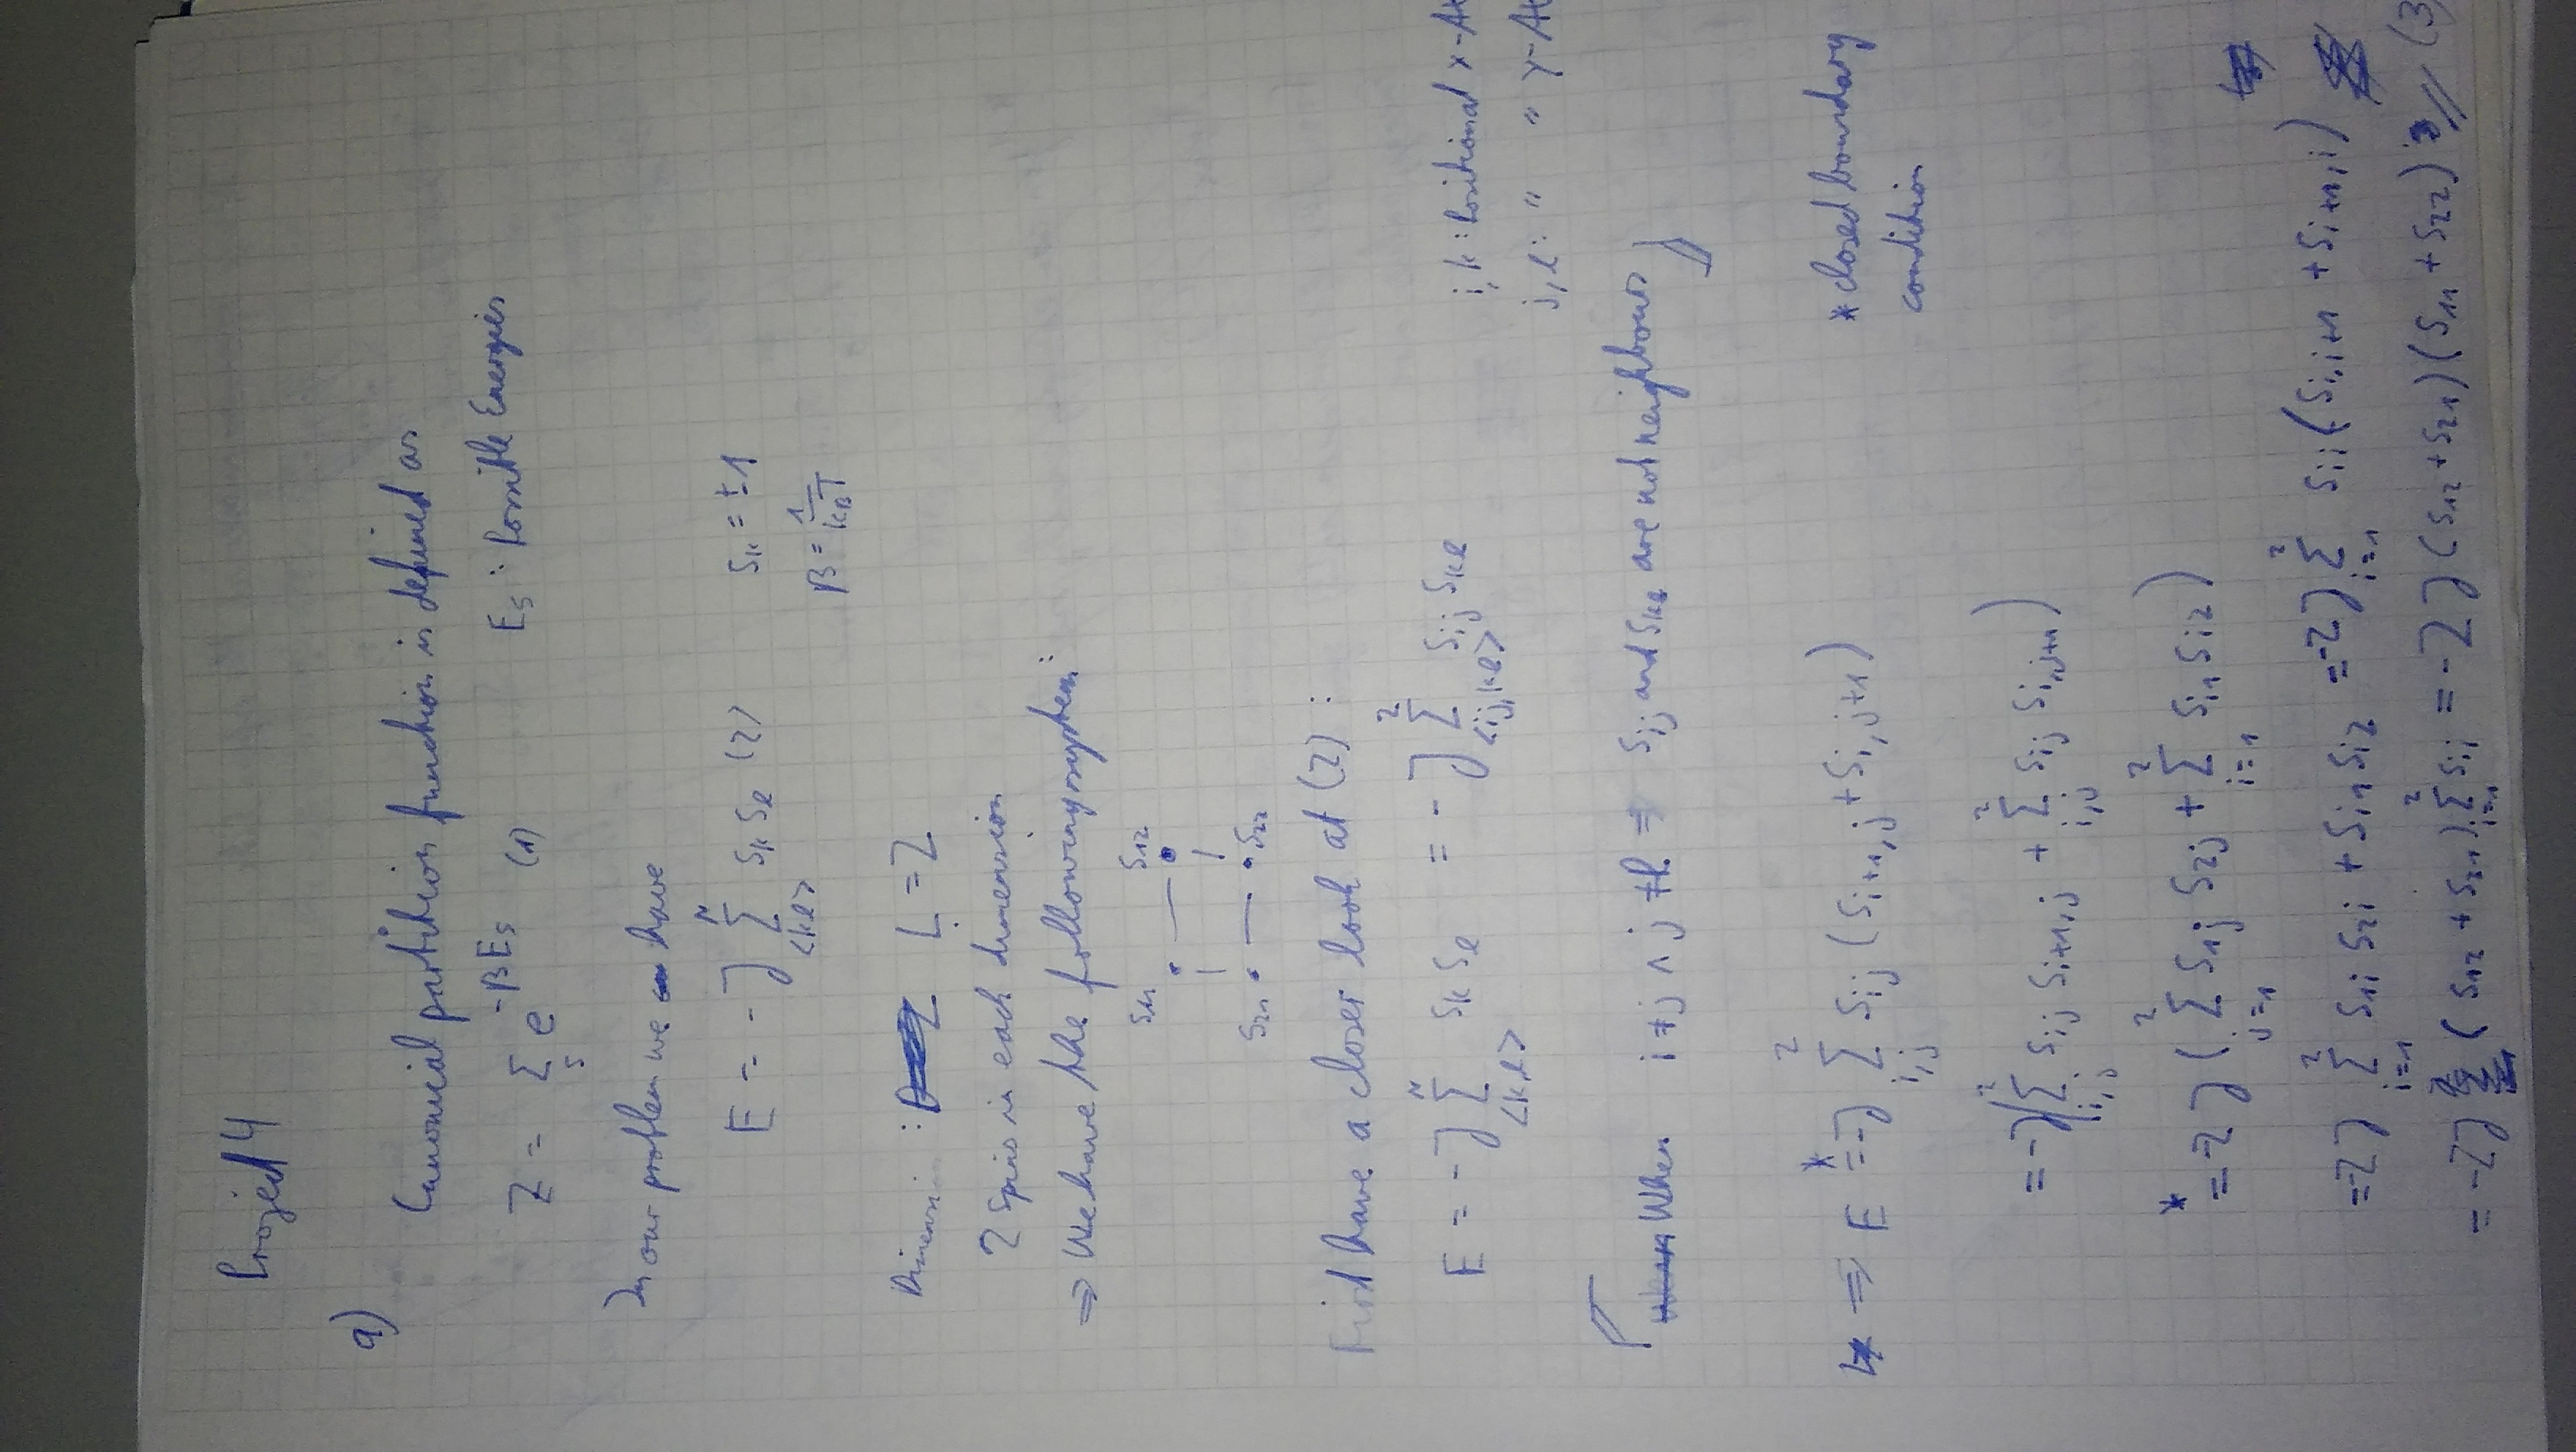 Project 4
a)
Canonical partition function is defined as
Z = Σ_s e^{-βE_s} (1) E_s : Possible Energies
In our problem we have
E = -J Σ_{<kl>}^{N} s_k s_l (2) s_k = ±1
β = 1/(k_B T)
L = 2
2 spins in each dimension
⇒ We have the following system:
s_11 s_12
s_21 s_22
First have a closer look at (2) :
E = -J Σ_{<k,l>}^{N} s_k s_l = -J Σ_{<ij,kl>}^{2} s_ij s_kl i, k : Positional x-
j, l : " " y-
When i ≠ j ∧ j ≠ l ⇒ s_ij and s_kl are not neighbours
⇒ E =* -J Σ_{i,j}^{2} s_ij (s_{i+1,j} + s_{i,j+1}) * closed boundary
condition
= -J(Σ_{i,j}^{2} s_ij s_{i+1,j} + Σ_{i,j}^{2} s_ij s_{i,j+1})
=* -2J(Σ_{j=1}^{2} s_1j s_2j + Σ_{i=1}^{2} s_i1 s_i2)
= -2J Σ_{i=1}^{2} s_1i s_2i + s_i1 s_i2 = -2J Σ_{i=1}^{2} s_ii (s_{i,i+1} + s_{i+1,i})
= -2J (s_12 + s_21) Σ_{i=1}^{2} s_ii = -2J (s_12 + s_21)(s_11 + s_22) // (3